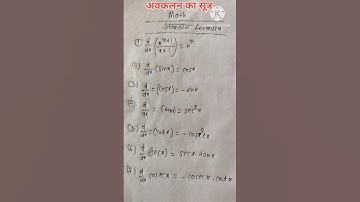 अवकलन का सूत्र
Math
अवकलन formula
(1) d/dx (x^(n+1)/(n+1)) = x^n
(2) d/dx (sinx) = cosx
(3) d/dx = (cosx) = -sinx
(4) d/dx = (tanx) = sec²x
(5) d/dx = (cotx) = -cosec²x
(6) d/dx (secx) = secx·tanx
(7) d/dx cosecx = -cosecx·cotx